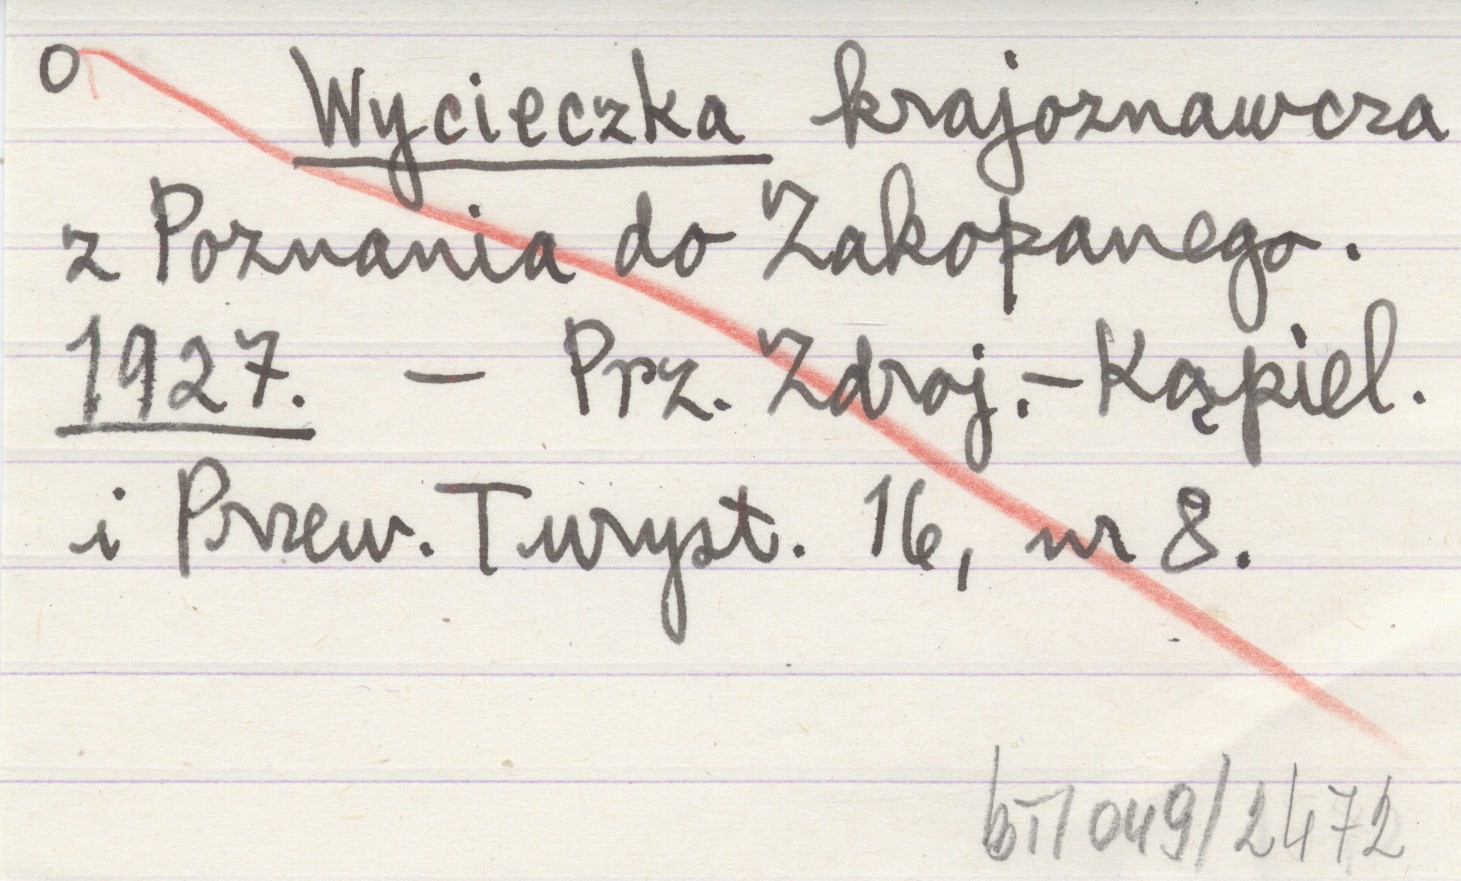 o Wycieczka krajoznawcza
z Poznania do Zakopanego.
1927. — Prz. Zdroj.-Kąpiel.
i Przew. Turyst. 16, nr 8.
bT/049/2472